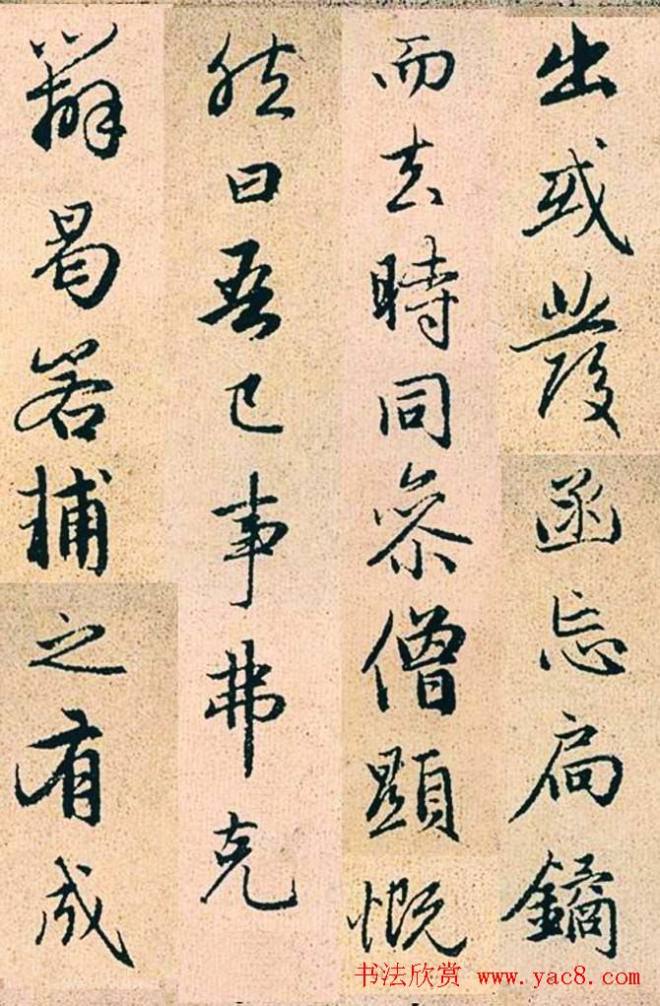 出或發函忘扃鐍
而去時同參僧顯慨
然曰吾已事弗克
辦曷若捕之有成
书法欣赏 www.yac8.com